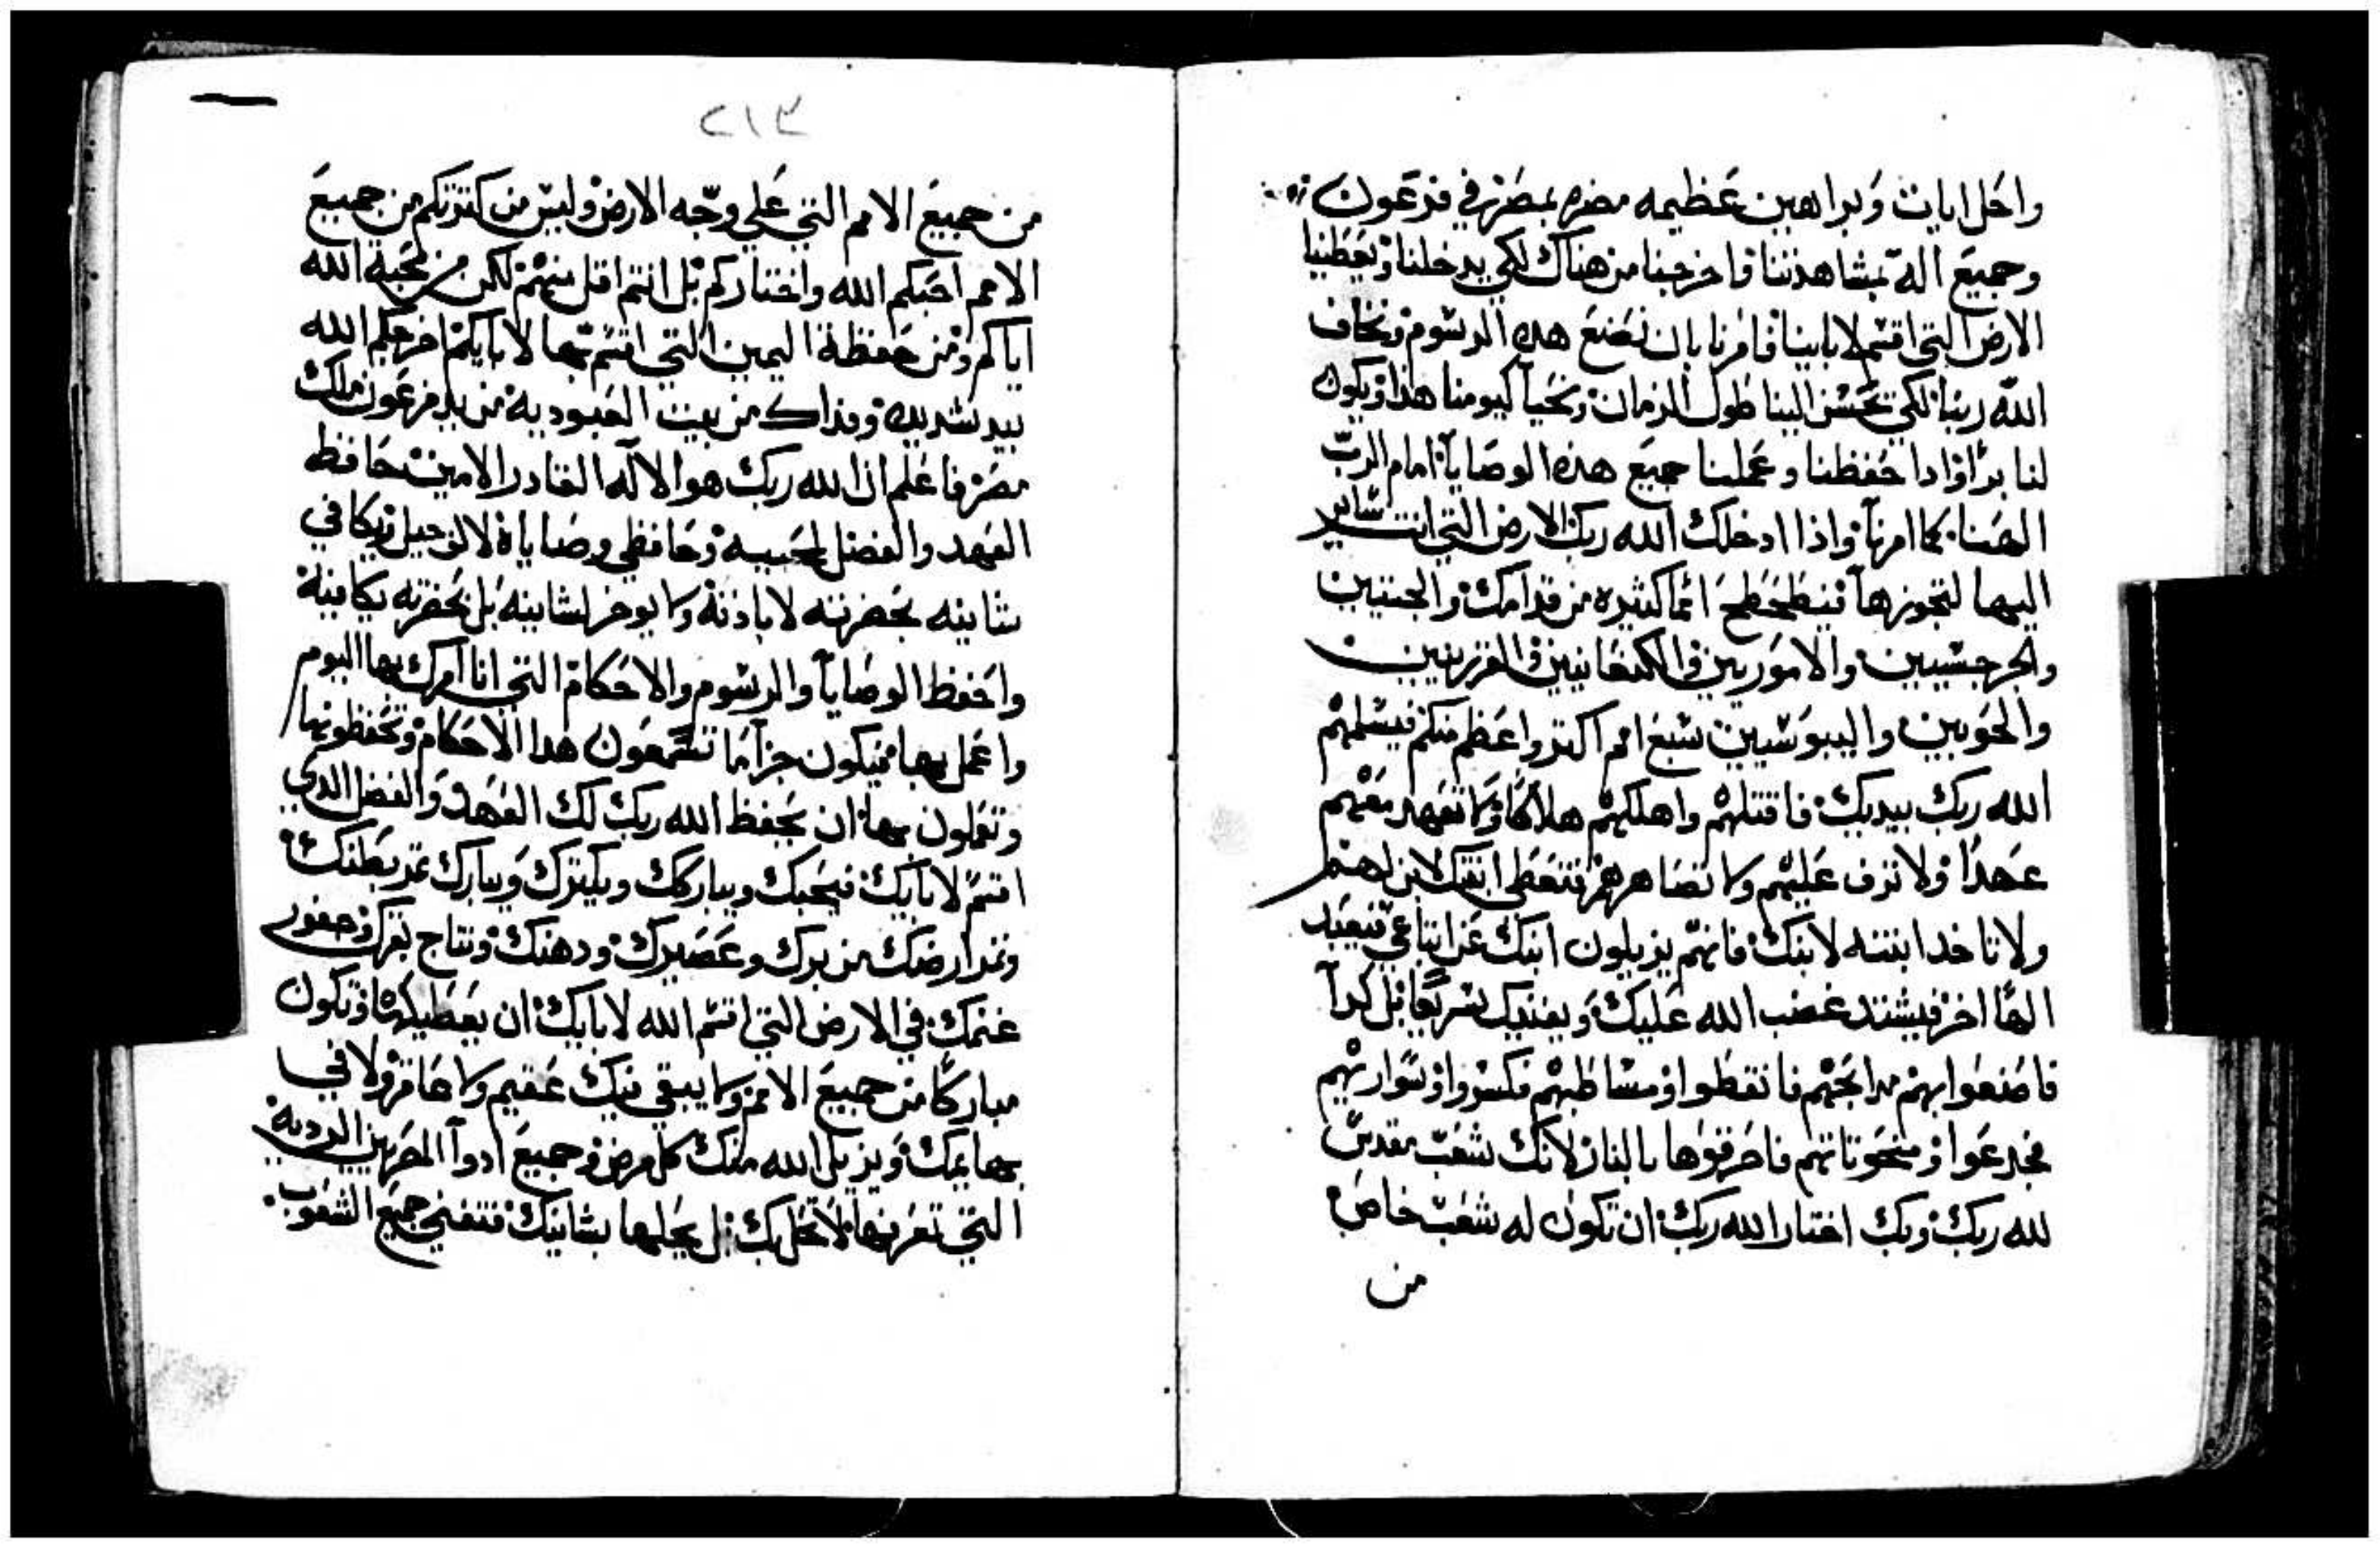 واحل ايات وبراهين عظيمه مضره بمصر في فرعون
وجميع اله بمشاهدتنا واخرجنا من هناك لكي يدخلنا ويعطينا
الارض التي اقسم لابابينا فامرنا بان نصنع هده الرسوم ونخاف
الله ربنا لكي يحسن الينا طول الزمان ونحيآ كيومنا هذا ويكون
لنا برا واذا حفظنا وعملنا جميع هذه الوصايآ امام الربّ
الهنا كما امرنآ واذا ادخلك الله ربك الارض التي انت ساير
اليها لتجوزها فيطحطح امما كثيره من قدامك والجتيين
والجرجسيين والاموريين والكنعانيين والفرزيين
والحويين واليبوسيين سبع امم اكثر واعظم منكم فيسلمهم
الله ربك بيديك فاقتلهم واهلكهم هلاكا ولا تعهد معهم
عهدا ولا ترف عليهم ولا تصاهرهم فتعطى ابنتك لابن لهم
ولا تاخد ابنته لابنك فانهم يزيلون ابنك عن اتباعي فيعبد
الها اخر فيشتد غضب الله عليك ويفنيك سريعا بل كدآ
فاصنعوا بهم مدابحهم فانقطوا ومساطبهم فكسروا وسواريهم
فجدعوا ومنحوتاتهم فاحرقوها بالنار لانك شعب مقدس
لله ربك وبك اختار الله ربك ان تكون له شعب خاص
من
٢١٣
من جميع الامم التي على وجه الارض وليس من كثرتكم من جميع
الامم احبكم الله واختاركم بل انتم اقل منهم لكن من محبة الله
اياكم ومن حفظه اليمين التي اقسم بها لابايكم اخرجكم الله
بيد شديده وفداك من بيت العبودية من يد فرعون ملك
مصر فاعلم ان الله ربك هو الاله القادر الامين حافظ
العهد والفضل لمحبيه وحافظي وصاياه لالف جيل ويكافي
شانيه بحضرته لاباذته ولا يوخر لشانيه بل بحضرته يكافيه
واحفظ الوصايآ والرسوم والاحكام التي انا آمرك بها اليوم
واعمل بها فيكون جزآ ما تسمعون هدا الاحكام وتحفظونها
وتعملون بها ان يحفظ الله ربك لك العهد والفضل الدي
اقسم لابايك فيحبك ويباركك ويكترك ويبارك ثمر بطنك
وثمر ارضك من برك وعصيرك ودهنك ونتاج بقرك وحفور
غنمك في الارض التي اقسم الله لابايك ان يعطيكها وتكون
مباركا من جميع الامم ولا يبقي فيك عقيم ولا عاقر ولا في
بهايمك ويزيل الله منك كل مرض وجميع ادوآ المصريين الرديه
التي تعرفها لا تحل بك بل يحلها بشانيك فتفني جميع الشعوب